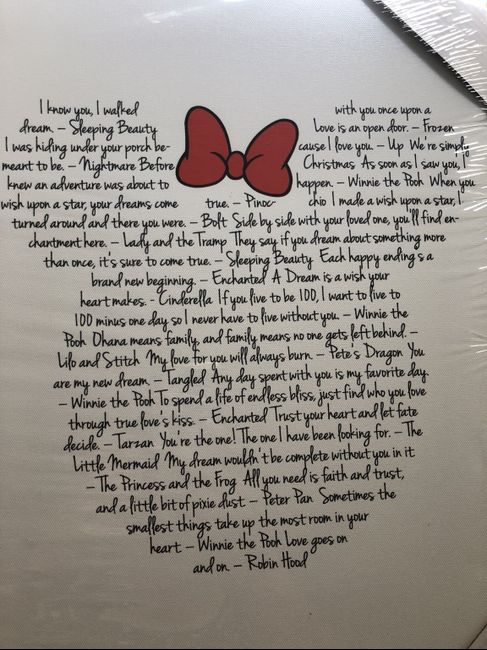 I know you, I walked with you once upon a
dream. – Sleeping Beauty Love is an open door. – Frozen
I was hiding under your porch be- cause I love you. – Up We're simply
meant to be. – Nightmare Before Christmas As soon as I saw you, I
knew an adventure was about to happen. – Winnie the Pooh When you
wish upon a star, your dreams come true. – Pinoc- chio I made a wish upon a star, I
turned around and there you were. – Bolt Side by side with your loved one, you'll find en-
chantment here. – Lady and the Tramp They say if you dream about something more
than once, it's sure to come true. – Sleeping Beauty Each happy ending s a
brand new beginning. – Enchanted A Dream is a wish your
heart makes. - Cinderella If you live to be 100, I want to live to
100 minus one day so I never have to live without you. – Winnie the
Pooh Ohana means family, and family means no one gets left behind. –
Lilo and Stitch My love for you will always burn. – Pete's Dragon You
are my new dream. – Tangled Any day spent with you is my favorite day.
– Winnie the Pooh To spend a life of endless bliss, just find who you love
through true love's kiss. – Enchanted Trust your heart and let fate
decide. – Tarzan You're the one! The one I have been looking for. – The
Little Mermaid My dream wouldn't be complete without you in it
– The Princess and the Frog All you need is faith and trust,
and a little bit of pixie dust. – Peter Pan Sometimes the
smallest things take up the most room in your
heart – Winnie the Pooh Love goes on
and on. – Robin Hood